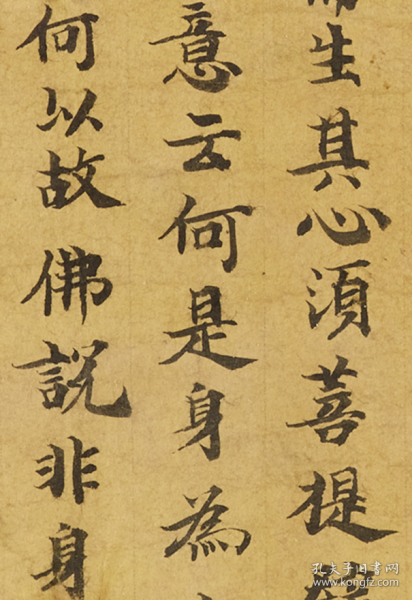 生其心須菩提
意云何是身為
何以故佛說非身
孔夫子旧书网
www.kongfz.com